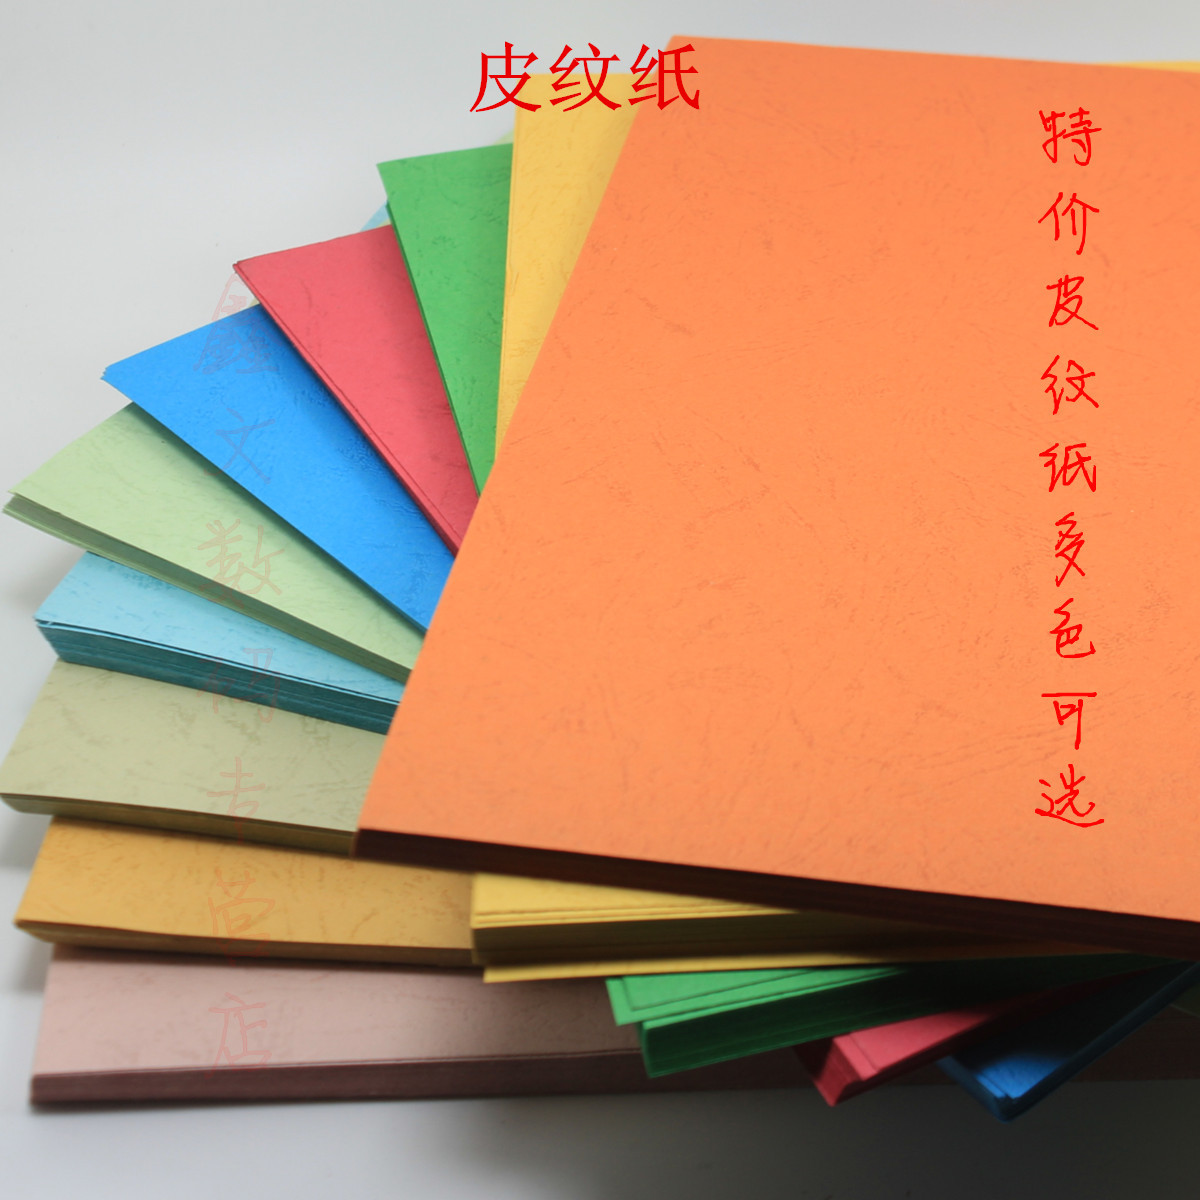 皮纹纸
特价皮纹纸多色可选
文数码专营店